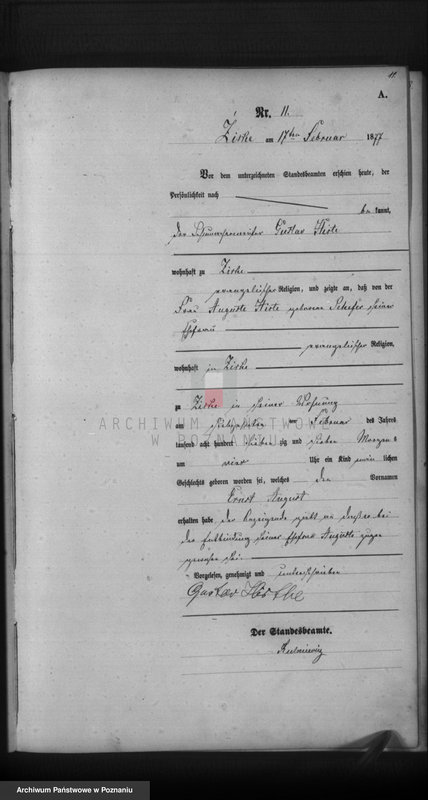 11
A.
Nr. 11.
Zirke am 17ten Februar 1877
Vor dem unterzeichneten Standesbeamten erschien heute, der
Persönlichkeit nach
be kannt,
der Schuhmachermeister Gustav
wohnhaft zu Zirke
evangelischer Religion, und zeigte an, daß von der
Frau Auguste geborene Schefer seiner
Ehefrau
evangelischer Religion,
wohnhaft in Zirke
zu Zirke in seiner Wohnung
am ten Februar des Jahres
tausend acht hundert sieben zig und sieben Morgens
um vier Uhr ein Kind männlichen
Geschlechts geboren worden sei, welches den Vornamen
Ernst August
erhalten habe der Anzeigende giebt an daß er bei
der Entbindung seiner Ehefrau Auguste zugegen
gewesen sei.
Vorgelesen, genehmigt und unterschrieben
Gustav
Der Standesbeamte.
ARCHIWUM PAŃSTWOWE
W POZNANIU
Archiwum Państwowe w Poznaniu